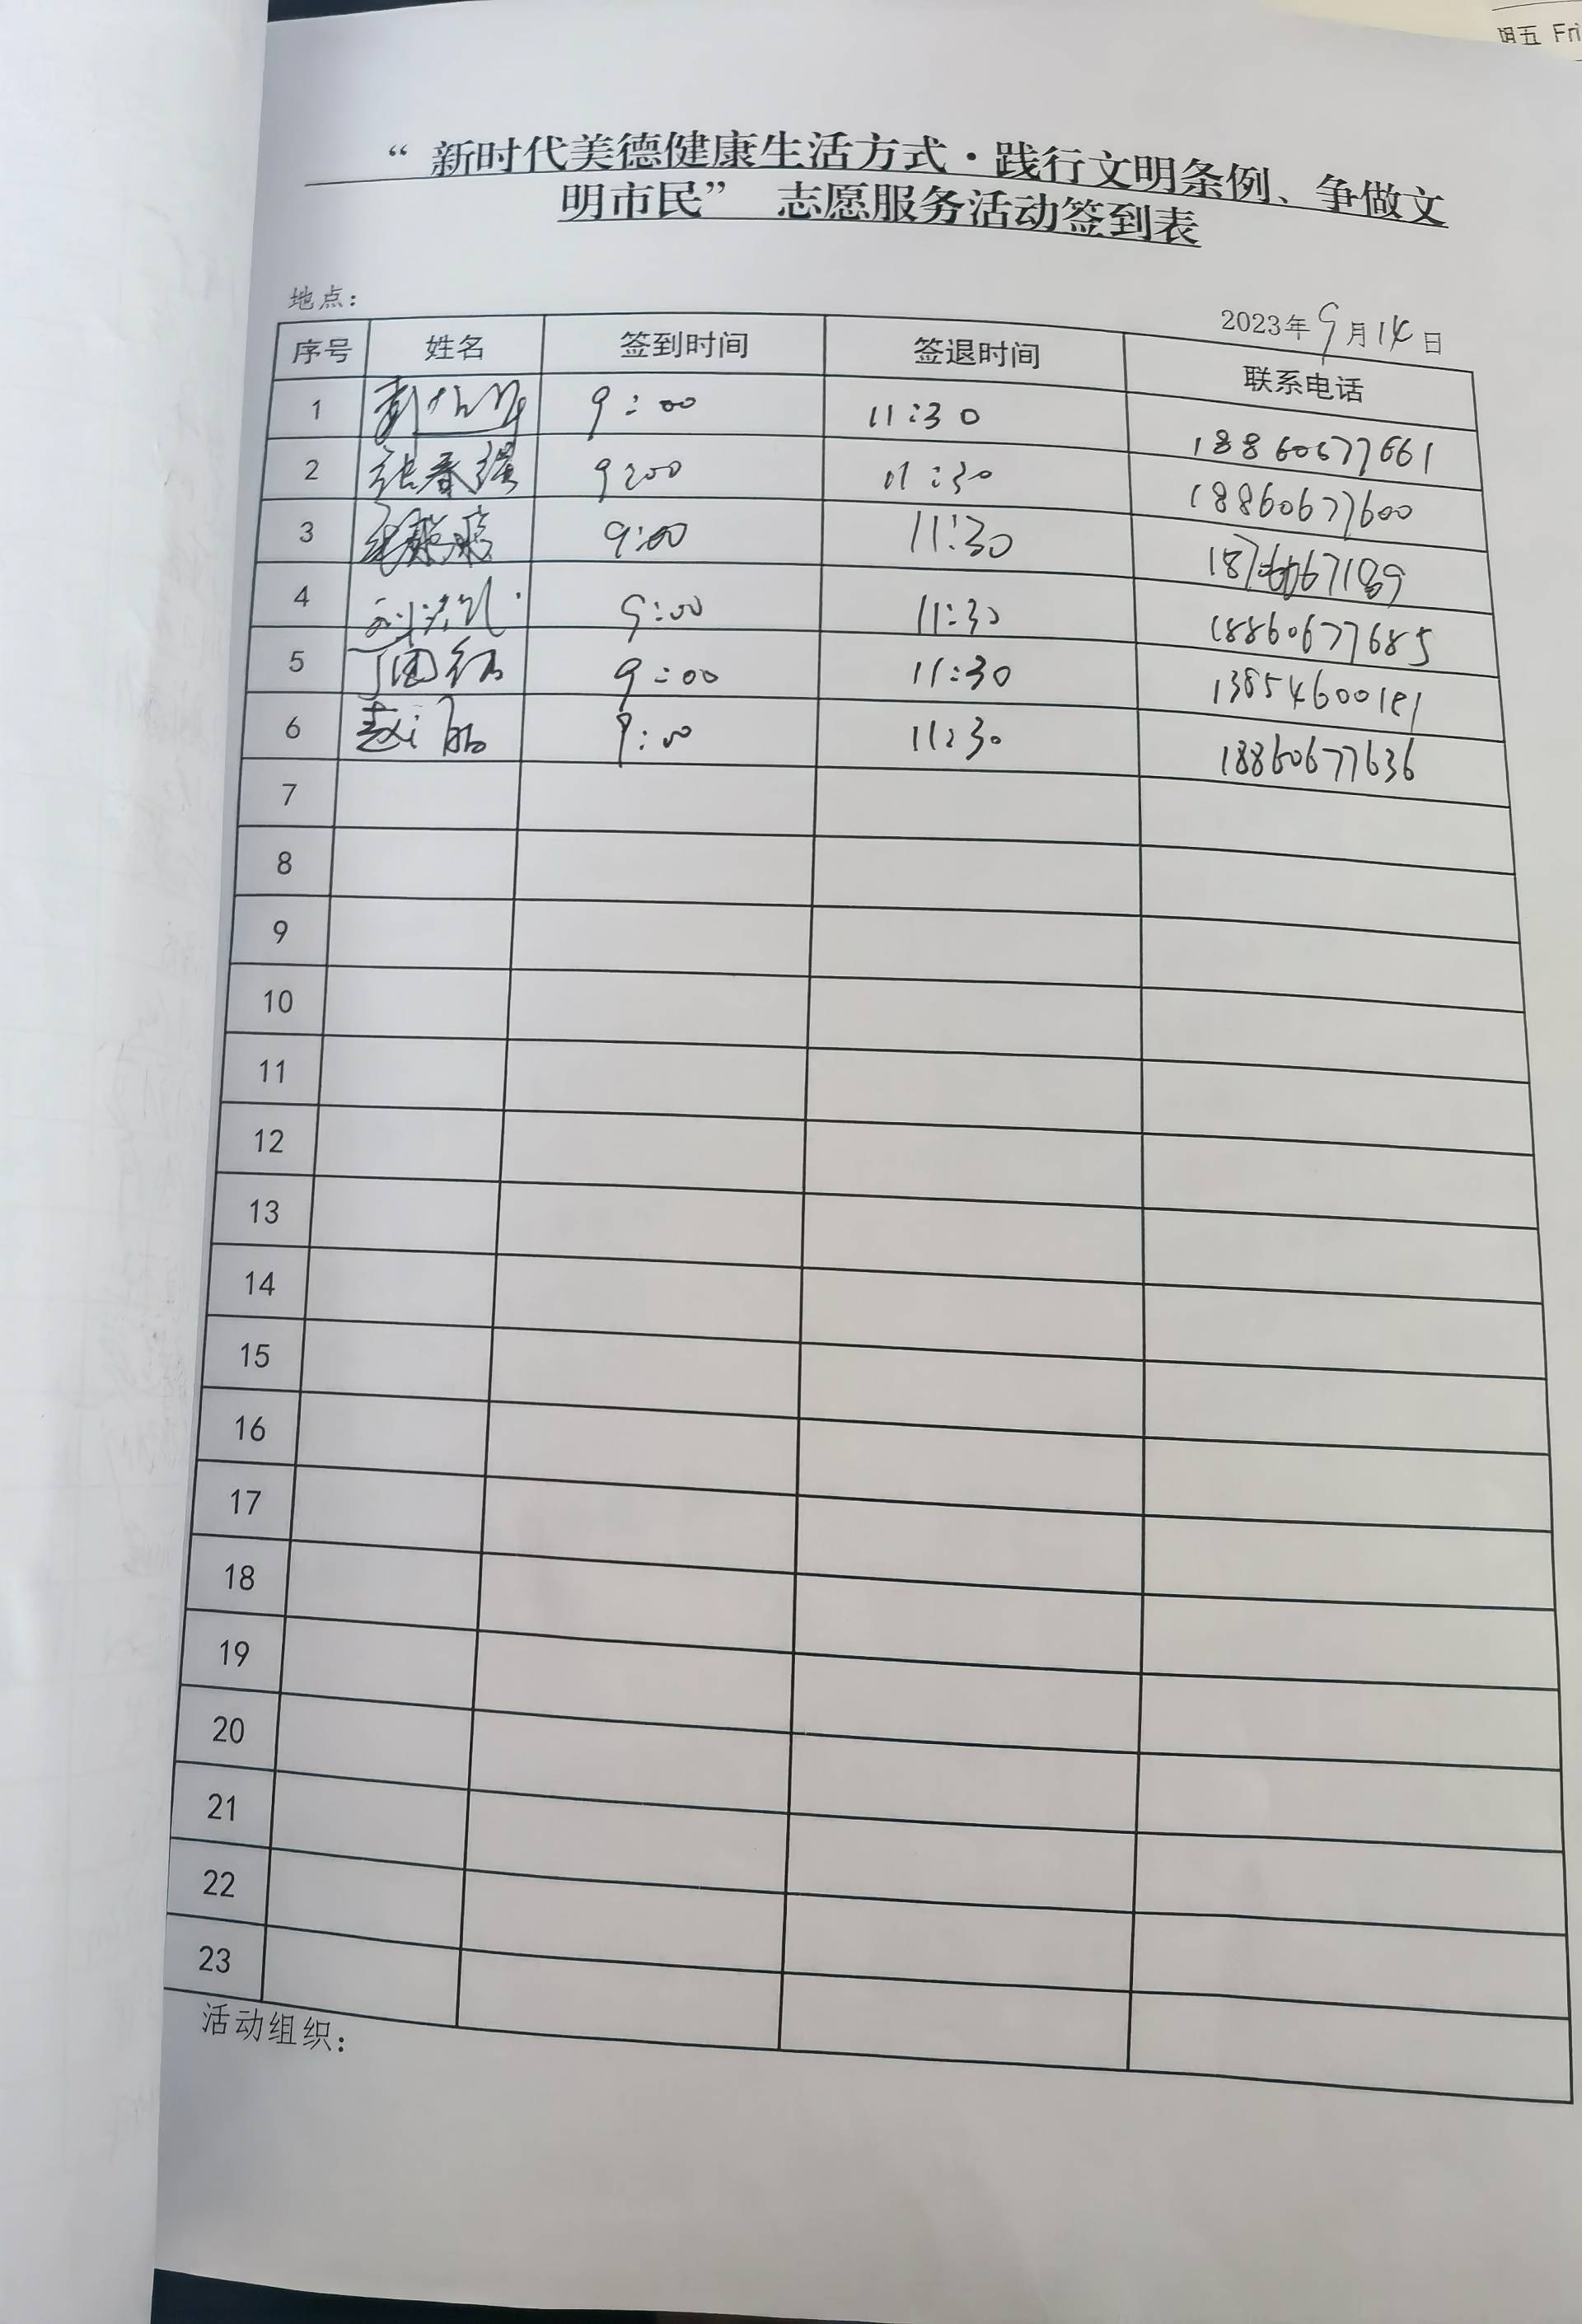 期五 Fri
“新时代美德健康生活方式·践行文明条例、争做文
明市民” 志愿服务活动签到表
地点：
2023年9月14日
序号 姓名 签到时间 签退时间 联系电话
1 9:00 11:30 18860677661
2 张春强 9:00 11:30 18860677600
3 9:00 11:30
4 9:00 11:30 18860677685
5 丁国红 9:00 11:30 13854600181
6 赵 9:00 11:30 18860677636
7
8
9
10
11
12
13
14
15
16
17
18
19
20
21
22
23
活动组织：